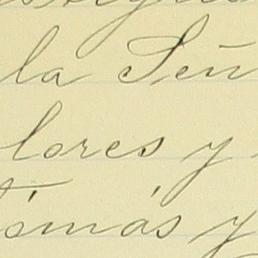 la Señ
lores y
Tomás y